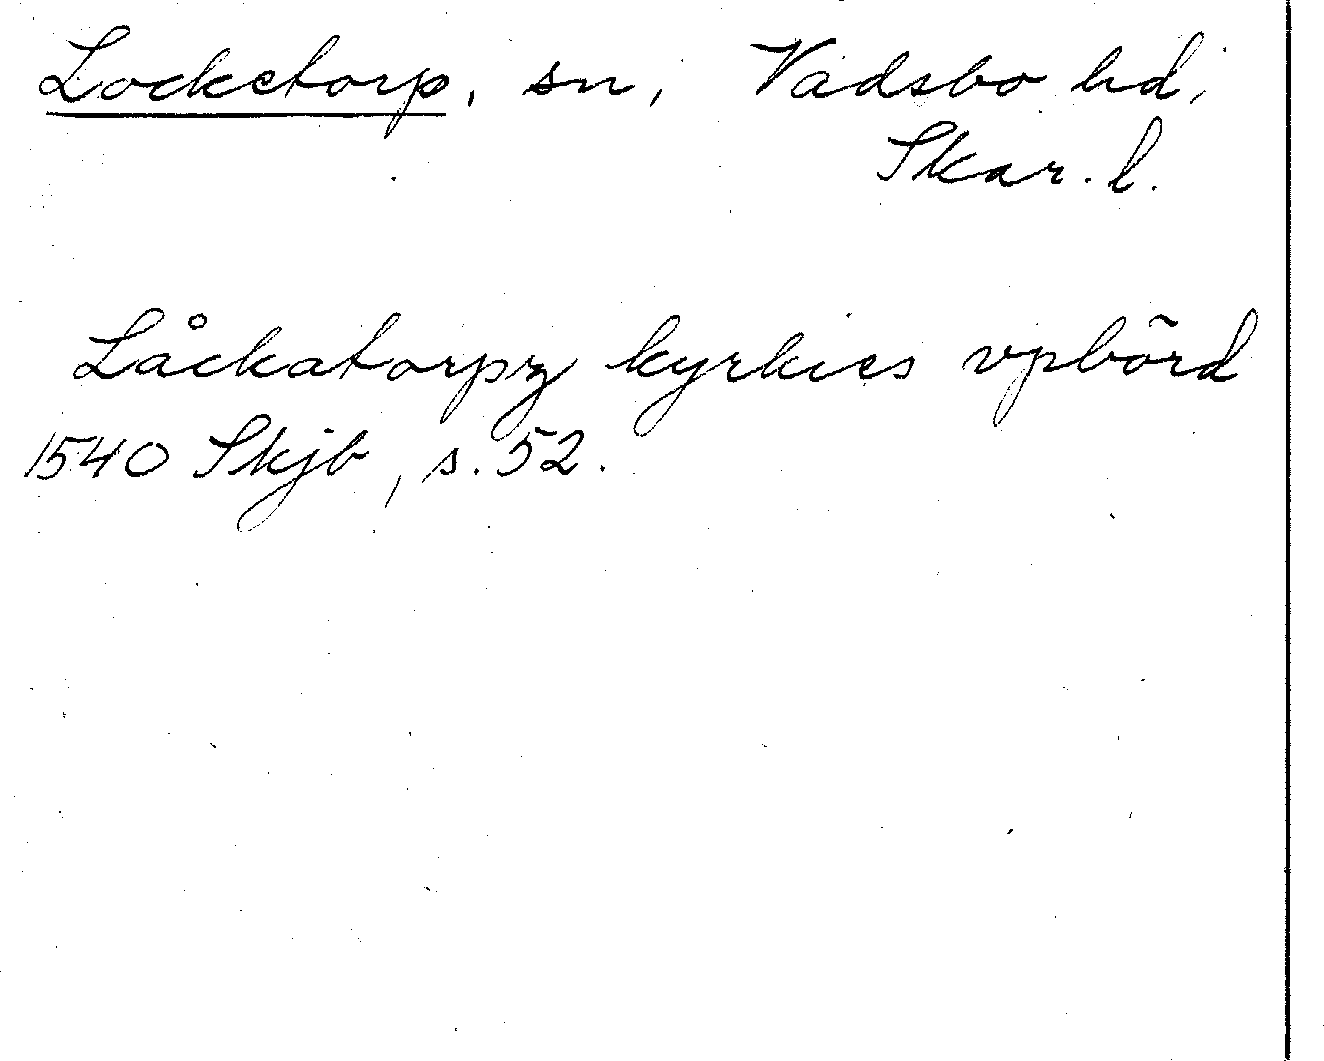 Locketorp, sn, Vadsbo hd,
Skar. l.
Låckatorpz kyrkies vpbõrd
1540 Skjb, s. 52.